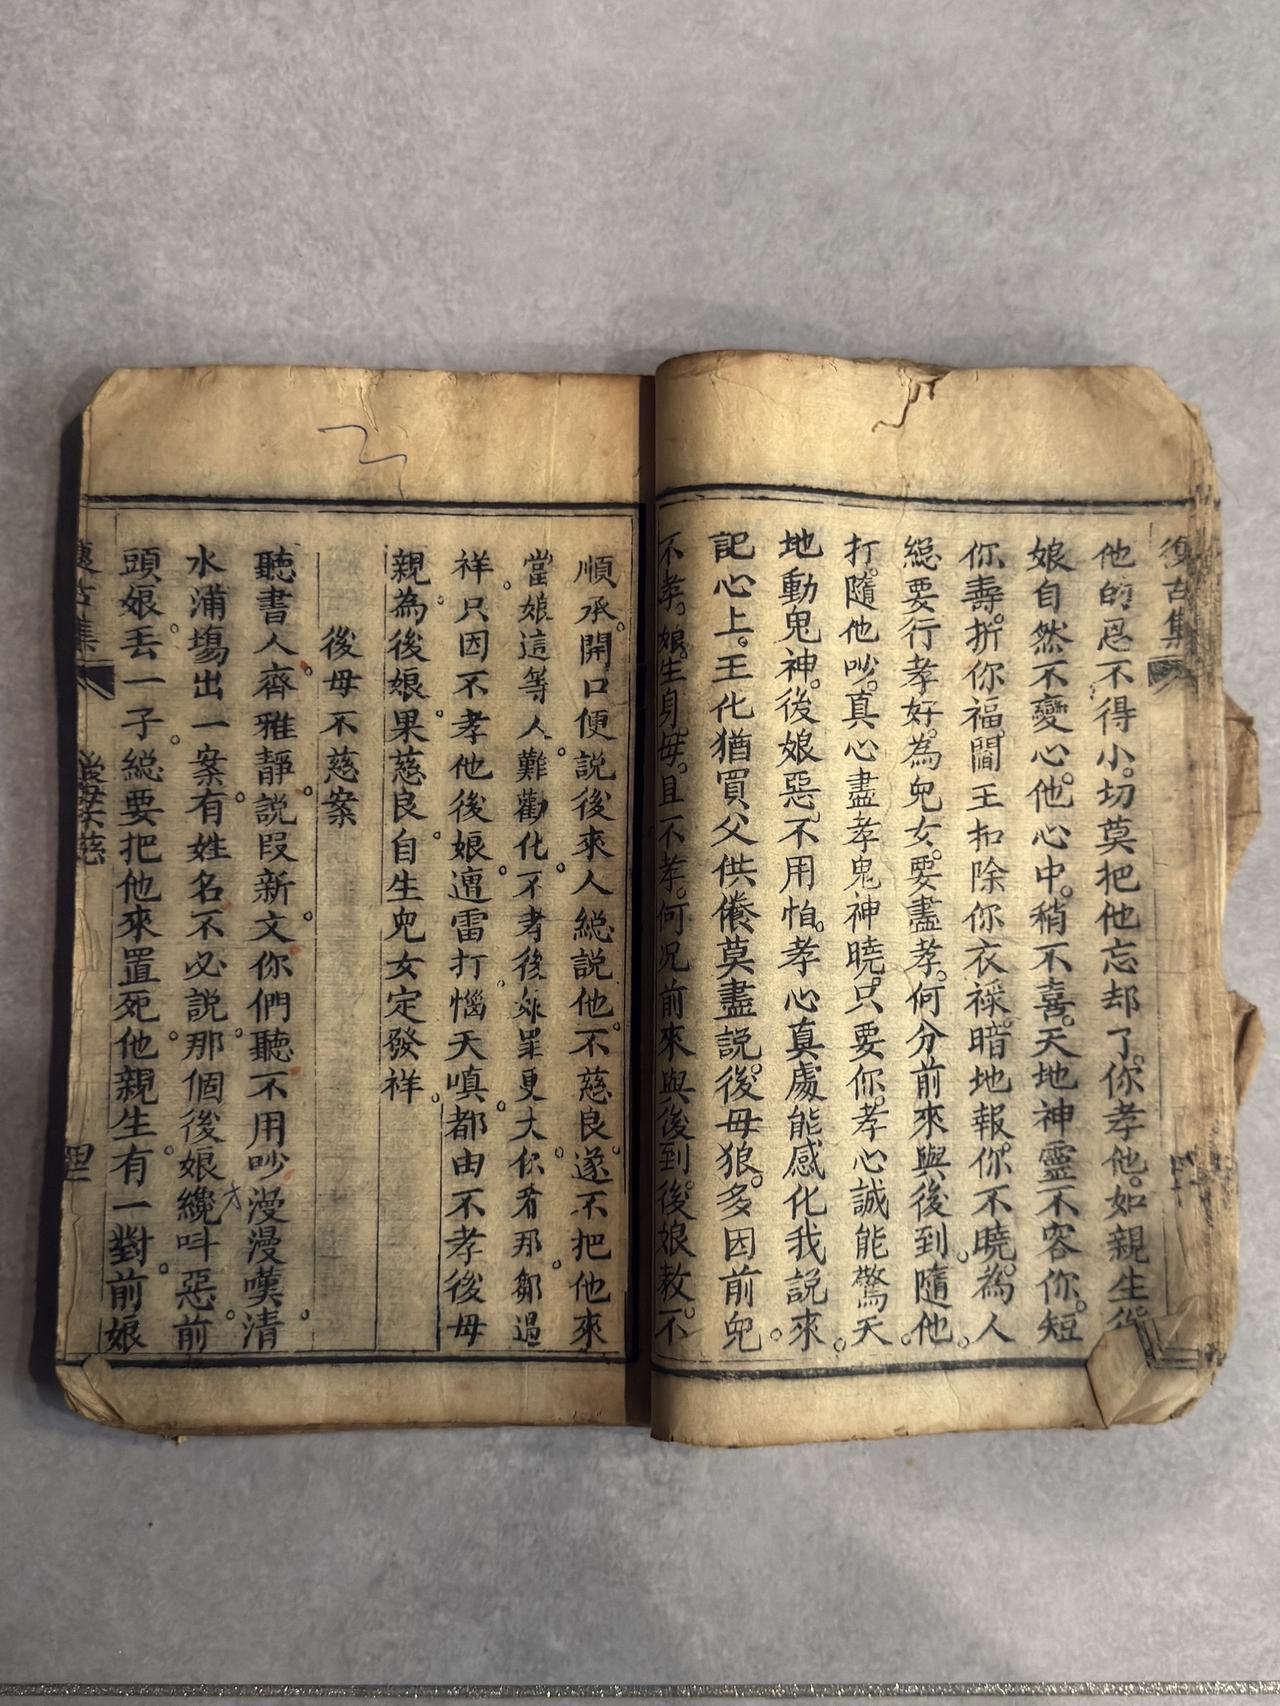 復古集
他的恩不得小。切莫把他忘却了。你孝他。如親生。後
娘自然不變心。他心中。稍不喜。天地神靈不容你。短
你壽。折你福。閻王扣除你衣祿。暗地報。你不曉。為人
總要行孝好。為兒女。要盡孝。何分前來與後到。隨他
打。隨他吵。真心盡孝鬼神曉。只要你。孝心誠能驚天
地動鬼神。後娘惡。不用怕。孝心真處能感化我說來。
記心上。王化猶買父供養莫盡說。後母狼。多因前兒
不孝。娘。生身母。且不孝。何况前來與後到。後娘教。不
順承。開口便説後來人總説他。不慈良。遂不把他來
當娘。這等人。難勸化。不孝後娘罪更大。你看那。鄒過
祥。只因不孝他後娘。遭雷打。惱天嗔。都由不孝後母
親為後娘。果慈良。自生兒女定發祥。
後母不慈案
聽書人。齊雅靜。説段新文。你們聽不用吵漫漫嘆清。
水浦塲出一案。有姓名不必説。那個後娘纔呌惡。前
頭娘。丟一子。總要把他來置死。他親生。有一對。前娘
後母不慈